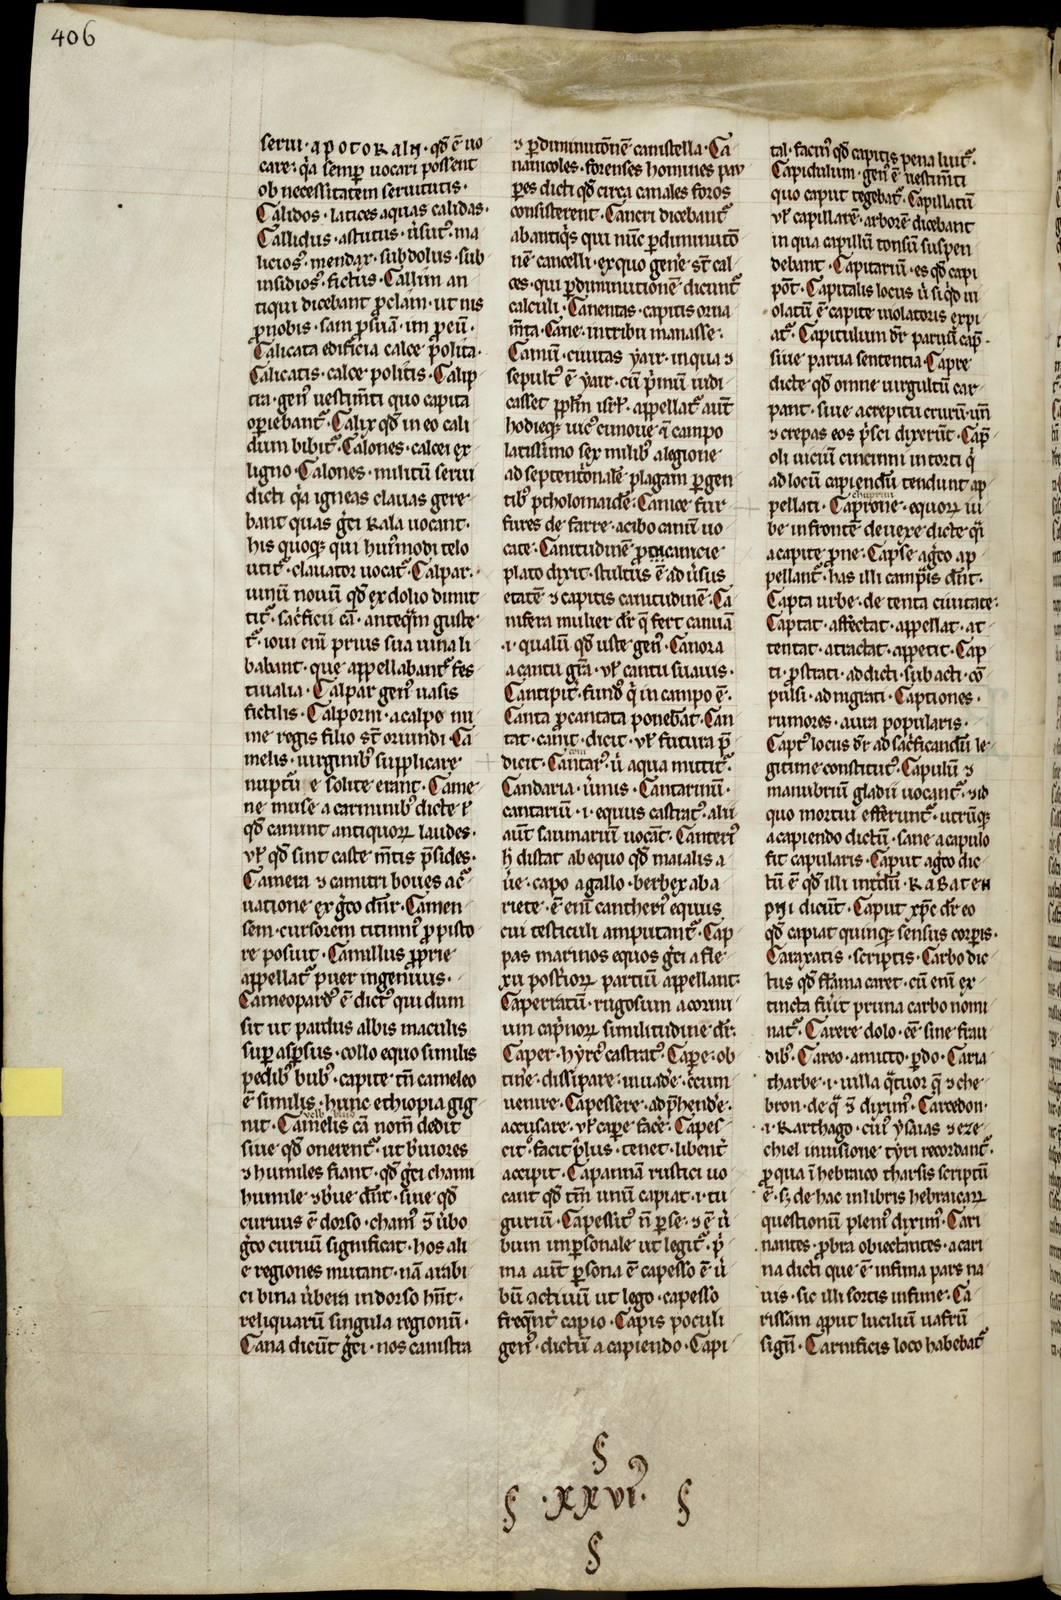 406
serui· apotokalin· qd̄ ē uo
care· q̇a semꝑ uocari possent
ob necessitatem seruitutis·
Calidos· latices aquas calidas·
Callidus· astutus· ūsut᷒· ma
licios᷒· mendax· subdolus· sub
insidios᷒· fictus· Callim an
tiqui dicebant ꝓclam· ut nis
ꝓnobis· sam ꝓsuā· im ꝓ eū·
Calicata edificia calce p̄olita·
Calicatis· calce politis· Calip
tra· gen᷒ uestim̄ti quo capita
oꝑiebant᷑· Calix qd̄ in eo cali
dum bibit᷑· Calones· calcei ex
ligno· Calones· militū serui
dicti q̇a igneas clauas gere
bant quas g̊ci kala uocant·
his quoqꝫ qui hui᷒modi telo
utit᷑· clauator uocat᷑· Calpar·
uinū nouū qd̄ ex dolio dimit
tit᷑· sac̄ficii cā· anteq̄m guste
t᷑· ioui eni᷒ prius sua uina li
babant· que appellabant᷑ fes
tiualia· Calpar gen᷒ uasis
fictilis· Calporni· a calpo nu
me regis filio st̄ oriundi· Ca
melis· uirginib᷒ supplicare
nuptu᷒e solite erant· Came
ne muse a carminib᷒ dicte ł
qd̄ canunt antiquoꝝ laudes·
vł qd̄ sint caste m̄tis p̄sides·
Camera ⁊ camuri boues a c᷑
uatione ex g̊co dn̄r· Camen
sem· cursorem titinni᷒ ꝓ pisto
re posuit· Camillus ꝓprie
appellat᷑ puer ingenuus·
Cameopard᷒ ē dict᷒ qui dum
sit ut pardus albis maculis
suꝑ asꝑsus· collo equo similis
pedib᷒ bub᷒· capite tn̄ cameleo
ē similis· hunc ethiopia gig
nit· Camelis cā nom̄ dedit
siue qd̄ onerent᷑· ut b̄uiores
⁊ humiles fiant· qd̄ g̊ci chami
humile ⁊ b̄ue dn̄t· siue qd̄
curuus ē dorso· cham᷒ ē ūbo
g̊co curuū significat· hos ali
e regiones mutant· nā arabi
ci bina ūbera in dorso hn̄t·
reliquarū singula regionū·
Cana dicūt g̊ci· nos canistra
⁊ ꝑ diminutōnē canistella· Ca
nanicoles· forenses homines pau
ꝑes dicti qd̄ circa canales foros
consisterent· Cancri dicebant᷑
ab antiq̇s qui nūc ꝑ diminutō
nē cancelli· ex quo gen̄e st̄ cal
ces· qui ꝑ diminutionē dicunt᷑
calculi· Canentas· capitis orna
m̄ta· Cane· in tribu manasse·
Camū· ciuitas yair· in qua ⁊
sepult᷒ ē yair· cū p̄mū iudi
casset ppl̄m isrł· appellat᷑ aut̄
hodieqꝫ uic᷒ cimoue ī campo
latissimo sex milib᷒ a legione
ad septent̄onalē plagam ꝑgen
tib᷒ ptholomaidē· Canice fur
fures de farre· a cibo canū uo
cate· Canitudinē ꝓ canicie
plato dixit· stultus ē ad ūsus
etatē ⁊ capitis canitudinē· Ca
nifera mulier dr̄ q̄ fert canuā
·i· qualū qd̄ ē iste gen᷒· Canora
a cantu gr̄a· vł cantu suauis·
Cantipit᷑· fund᷒ q̇ in campo ē·
Canta ꝓ cantata poneb̄at· Can
tat· canit· dicit· vł futura p̄
dicit· Cantar᷒· ū aqua mittit᷑·
Candaria· ūmis· Cantarinū·
cantariū ·i· equus castrat᷒· alii
aūt saumariū uocāt· Canteri᷒
h̄ distat ab equo qd̄ maialis a
ūe· capo a gallo· berbex ab a
riete· ē eni᷒ cantheri᷒ equus
cui testiculi amputant᷑· Cap
pas marinos equos g̊ci a fle
xu post̄ioꝝ partiū appellant·
Caperratū· rugosum a cornu
um cap̄noꝝ similitudine dr̄·
Caper· hyrc᷒ castrat᷒· Caꝑe· ob
tin̄e· dissipare· inuad̄e· c̄cum
uenire· Capessere· ad p̄hend̄e·
accusare· vł caꝑe face᷒· Capes
cit· facit p̄lus· tenet· libent̄
accipit· Capannā rustici uo
cant qd̄ tm̄ unū capiat ·i· tu
guriū· Capessit᷒ n̄ ꝑ se· ⁊ ē ū
bum imꝑsonale ut legit᷑· p̄
ma aūt ꝑsona ē capesso ē ū
bū actiuū ut lego· capesso
freq̄nt̄ capio· Capis poculi
gen᷒· dictū a capiendo· Capi
tal· facin᷒ qd̄ capitis pena luit᷑·
Capidulum· gen᷒ ē uestim̄ti
quo caput tegebat᷑· Capillatū
vł capillarē· arborē dicebant
in qua capillū tonsū suspen
debant· Capitariū· es qd̄ capi
pōt· Capitalis locus ū si q̇d ui
olatū ē capite uiolatoris expi
at᷑· Capitulum dr̄ paruū cap̄·
siue parua sententia· Capre
dicte qd̄ omne uirgultū car
pant· siue a crepitu crurū· un̄
⁊ crepas eos p̄sci dixerūt· Cap̄
oli uiciū cincinni intorti q̇
ad locū capiendū tendunt ap
pellati· Caprone· equoꝝ iu
be in frontē deuexe dicte q̄i
a capite ꝓne· Capse a g̊co ap
pellant᷑· has illi camp̄as dn̄t·
Capta urbe· de tenta ciuitate·
Captat· affectat· appellat· at
tentat· atractat· appetit· Cap
ti· ꝓstrati· addicti· subacti· cō
pulsi· ad nigrati· Captiones·
rumores· aura popularis·
Capt᷒ locus dr̄ ad sac̄ficandū le
gitime constitut᷒· Capulū ⁊
manubriū gladii uocant᷑· ⁊ id
quo mortui efferunt᷑· utrūqꝫ
a capiendo dictū· sane a capulo
fit capularis· Caput a g̊co dic
tū ē qd̄ illi int̄dū· kabaten
pni dicūt· Caput xp̄c dr̄ eo
qd̄ capiat quinqꝫ sensus corꝑis·
Caraxatis· scriptis· Carbo dic
tus qd̄ flāma caret· cū eni᷒ ex
tincta fu̇it pruna carbo nomi
nat᷑· Carere dolo· ēē sine frau
dib᷒· Careo· amitto· ꝑdo· Caria
tharbe ·i· uilla q̄tuor q̄ ⁊ che
bron· de q̄ ⁊ dixim᷒· Carcedon·
·i· karthago· cui᷒ ysaias ⁊ eze
chiel in uisione tyri recordant᷑·
ꝓ qua ī hebraico tharsis scriptū
ē· sꝫ de hac in libris hebraicaꝝ
questionū pleni᷒ dixim᷒· Cari
nantes· ꝓbra obiectantes· a cari
na dicti que ē infima pars na
uis· sic illi sortis infime· Ca
rissam aput luciliū uafrū
sign̄· Carnificis loco habebat᷑
§
§ ·xxvi᷒· §
§